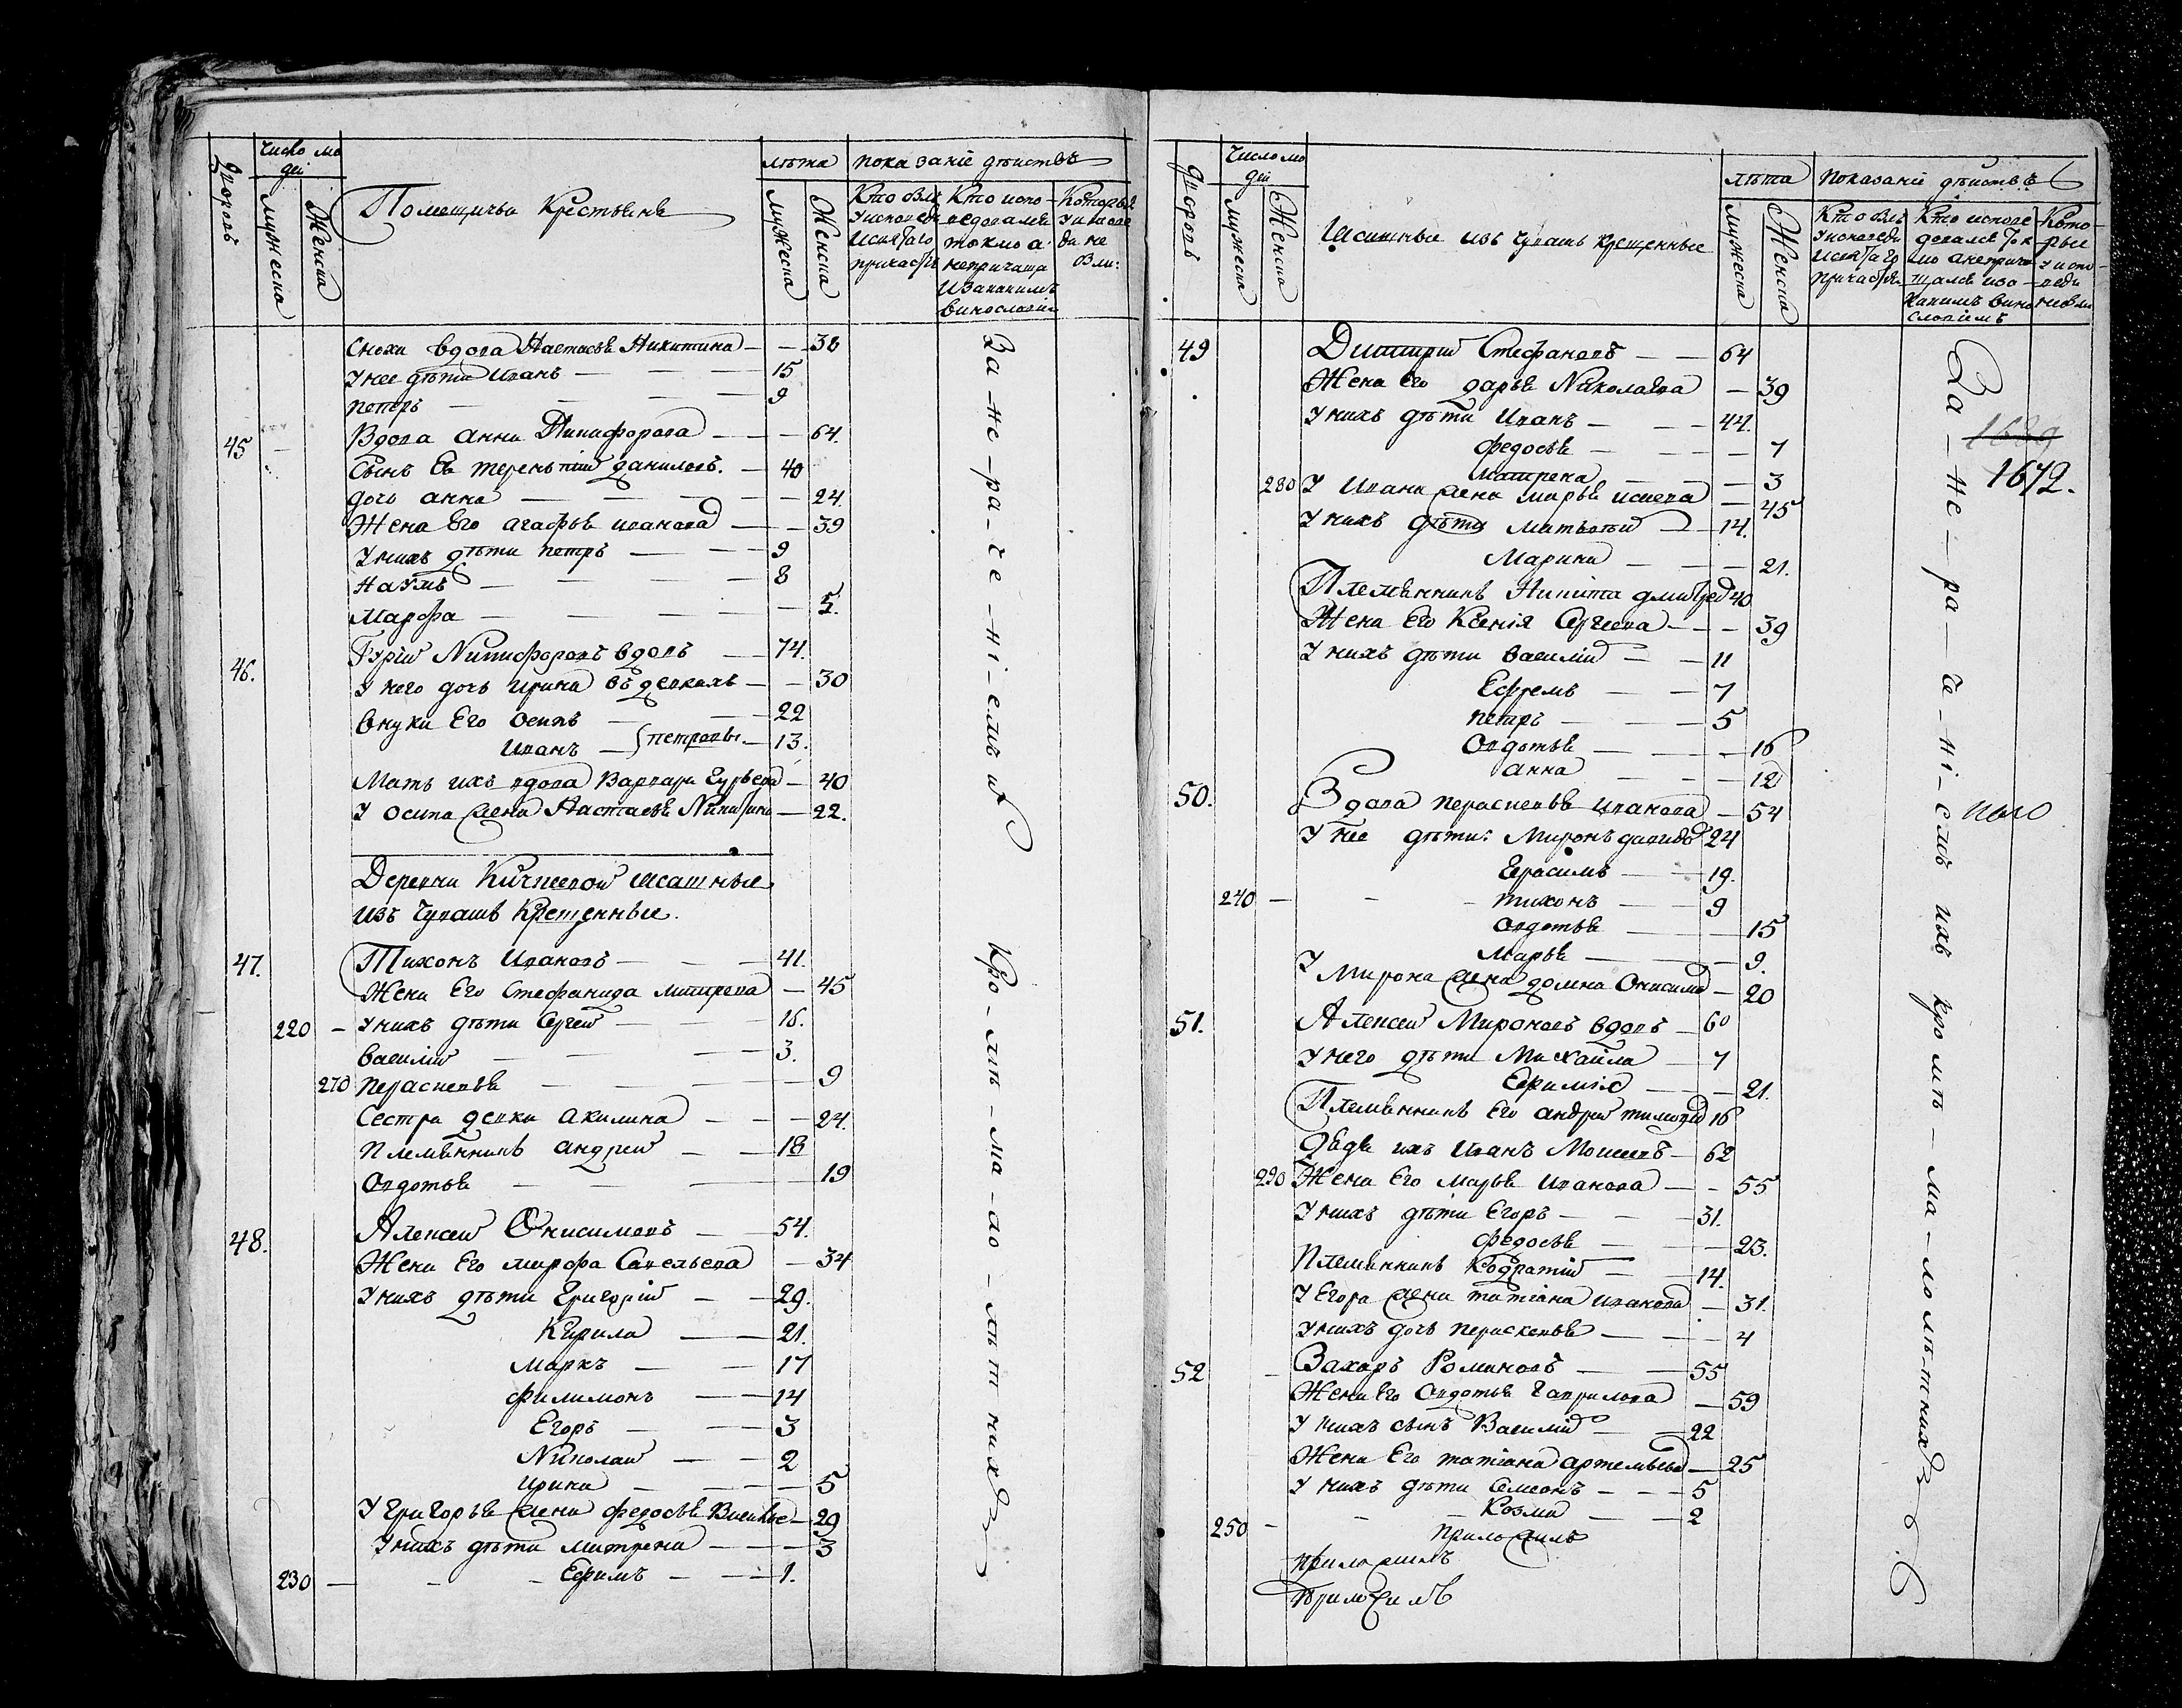 дворовъ
Число лю
деі
мужеска
Женска
Помещичьи Крестьяне
лѣта
мужеска
Женска
показаніе дѣиствъ
Кто былъ
У исповеди
И свята го
причастія
Кто испо
ведовался
токмо а
непричаща
И закакимъ
винословіем
Которые
У исповѣ
ди не
были
Сноха вдова Настасья Никитина — — 38
У нее дѣти Иванъ — — — 15
петръ — — — — 9
45 Вдова Анна Никифорова — — — 64.
Сынъ Ея терентий данилов. — 40
дочь анна — — — — 24.
Жена Его агафья иванова — — 39
У нихъ дѣти петръ — — — 9
Наумъ — — — — 8
Марфа — — — — 5.
46. Гурій Никифоровъ вдовъ — 74.
У него дочь ирина въ девкахъ — — 30
внуки Его осипъ — — 22
иванъ — петровы — 13.
Мать ихъ вдова Варвара Гурьева — 40
У осипа жена Настасья Никитина — 22.
Деревни Кичкеевой ясашные
изъ чувашъ Крещенные.
47. Тихонъ Ивановъ — — — 41.
Жена Его Стефанида митрева — 45
220 — У нихъ дѣти Сергей — — — 16.
василій — — — — 3.
270 Параскевья — — — — 9
Сестра девка акилина — — — 24.
племянникъ андрей — — 18
Овдотья — — — — 19
48. Алексей Онисимовъ — 54.
Жена Его марфа Савельева — 34
У нихъ дѣти Григорій — — 29.
Кирила — — 21.
Маркъ — — 17
филимонъ — — 14
Егоръ — — 3
Николай — — 2
ирина — — — 5
У Григорья жена федосья Василье — 29
У нихъ дѣти матрена — — — 3
230 — — — Ефимъ — — — 1.
За-не-ра-че-ні-емъ и
Кро-мѣ-ма-ло-лѣтнихъ
дворовъ
Число лю
деі
мужеска
Женска
Ясашные изъ чувашъ крещенные
лѣта
мужеска
Женска
Показаніе дѣиствъ
Кто былъ
У исповеди
И свята го
Причастія
Кто испове
довался ток
мо анепріча
щался иза
какимъ вино
словіемъ
Кото
рые
У испо
веди
небыли
49 Димитрий Стефановъ — — 64
Жена Его дарья Николаева — 39
У нихъ дѣти Иванъ — — — 44.
федосья — — — — 7
Матрена — — — 3
280 У Ивана жена марья исаева — 45
У нихъ дѣти матвей — 14.
Марина — — — 21.
Племянникъ Никита дмитрев 40
Жена Его Ксенія Сергеева — — — 39
У нихъ дѣти василій — — 11
Ефремъ — — 7
петръ — — — 5
Овдотья — — — — 16
анна — — — 12
50. Вдова параскевья иванова — 54
У нее дѣти: Миронъ давидов 24
Герасимъ — — 19.
240 — — — тихонъ — — 9
Овдотья — — 15
Марья — — — 9.
У Мирона жена домна Онисимо — 20
51. Алексей Мироновъ вдовъ — 60
У него дѣти Михайла — 7
Ефимія — — — 21.
Племянникъ Его андрей тимофе 16
дядя ихъ Иванъ Моисеевъ — 62
290 Жена Его марья иванова — — 55
У нихъ дѣти Егоръ — — — 31.
федосья — — — 23.
племянникъ Кодратій — — 14.
У Егора жена татіана иванова — 31.
У нихъ дочь параскевья — — — 4
52 Захаръ Романовъ — — 55
Жена Его Овдотья Гаврилова — 59
У нихъ сынъ Василій — — 22
Жена Его татіана артемьева — 25
У нихъ дѣти Семеонъ — — — 5
Козма — — 2
250 — — — приложилъ
приложилъ
приложилъ
За-не-ра-че-ні-емъ ихъ кромѣ-ма-лолѣтнихъ
1689
1672.